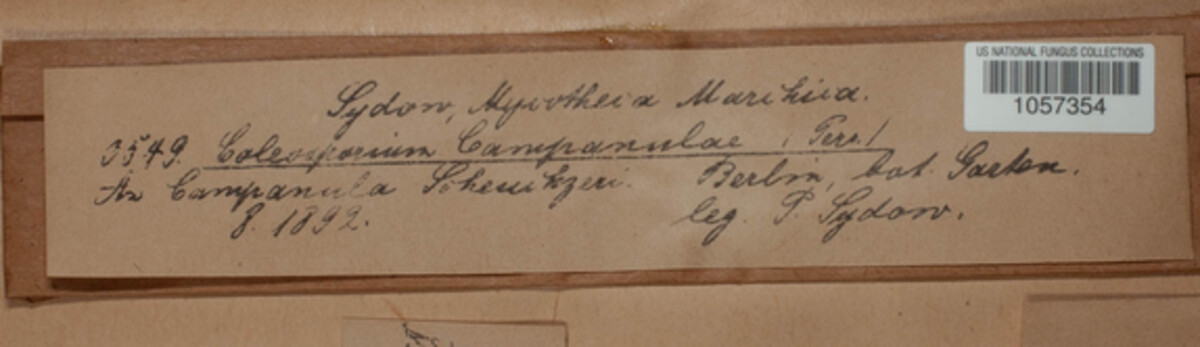 US NATIONAL FUNGUS COLLECTIONS
1057354
Sydow, Mycotheca Marchica.
3549. Coleosporium Campanulae (Pers.)
An Campanula Scheuchzeri. Berlin, bot. Garten.
8. 1892. leg. P. Sydow.